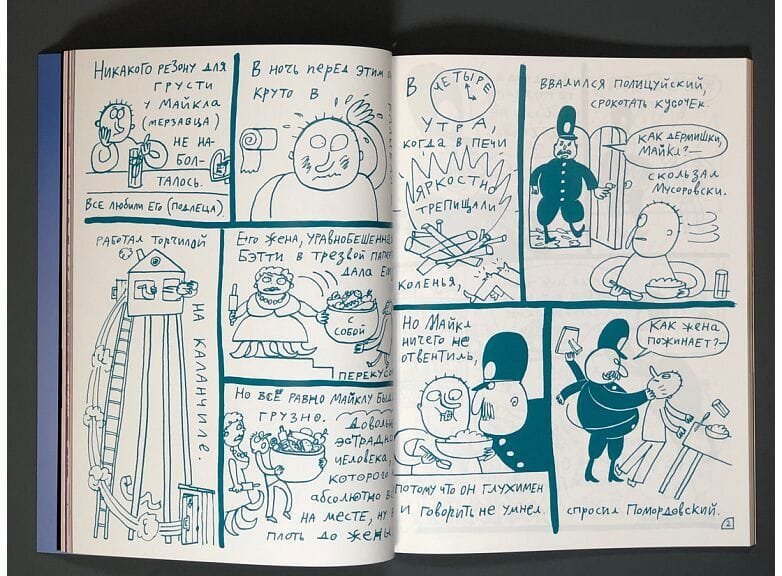 Никакого резону для
грусти
у Майкла
(мерзавца)
не на-
бол-
талось.
Все любили его (подлеца)
В ночь перед этим
круто в
работал торчилой
на каланчиле.
Его жена,
Бэтти в трезвой
дала его
с
собой
Но всё равно Майклу
грузно.
человека,
которого
абсолютно
на месте, ну
плоть до жены
В
четыре
утра,
когда в печи
яркостно
трепищали
коленья,
ввалился полицуйский,
срокотать кусочек.
Как дермишки,
Майкл?—
скользал
Мусоровски.
Но Майкл
ничего не
отвентиль,
потому что он глухимен
и говорить не умнел.
Как жена
пожинает?—
спросил Помордовский.
2